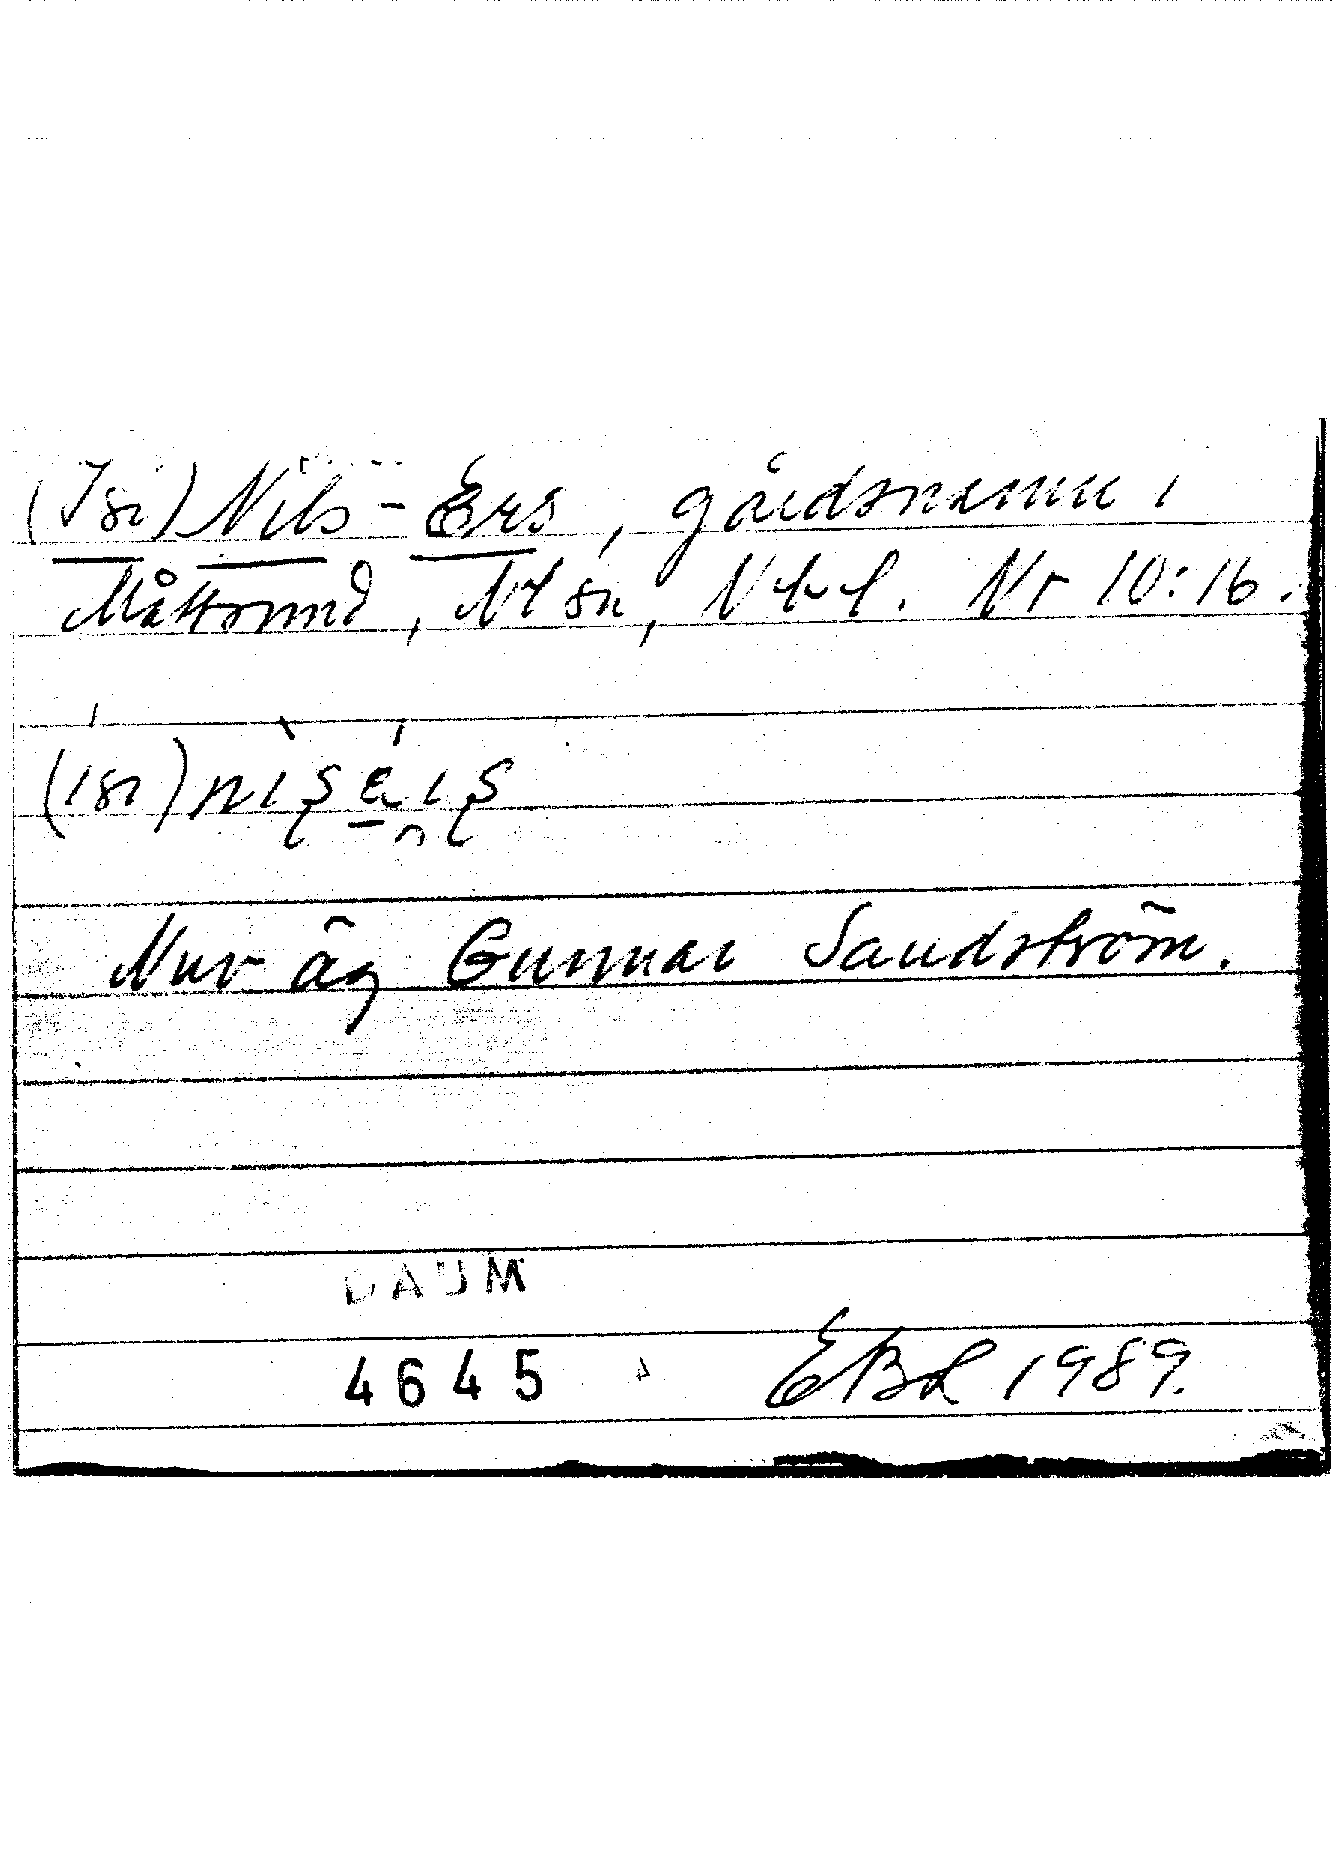 (Isi) Nils-Ers, gårdsnamn i
Måttsund, Nl sn, Nbtl. Nr 10:16.
Nuv äg Gunnar Sandström.
DAUM
4645
EBL 1989.